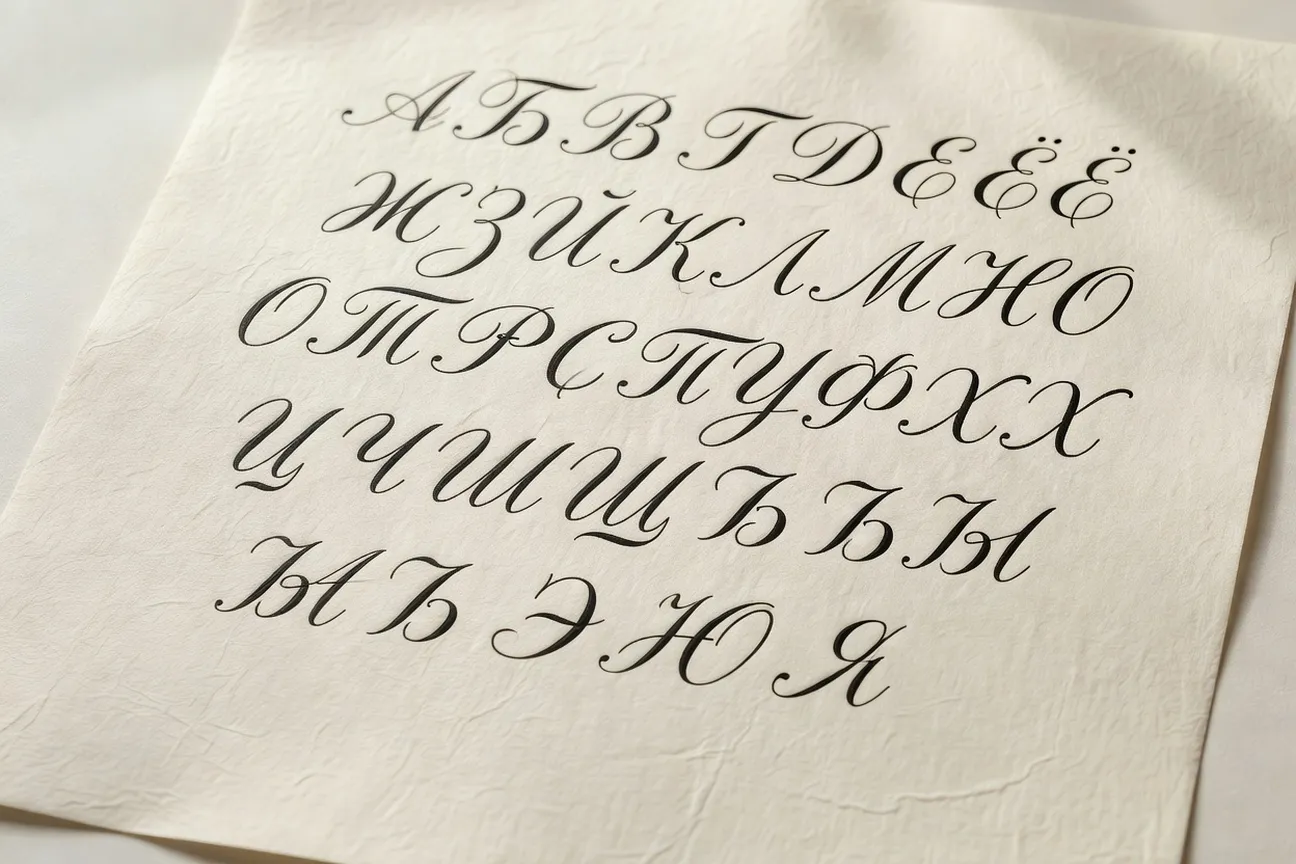 А Б В Г Д Е Ё Ё
Ж З Й К Л М Н О
О Т Р С П У Ф Х Х
Ц Ч Ш Щ Ъ Ъ Ы
ЪА Ъ Э Ю Я